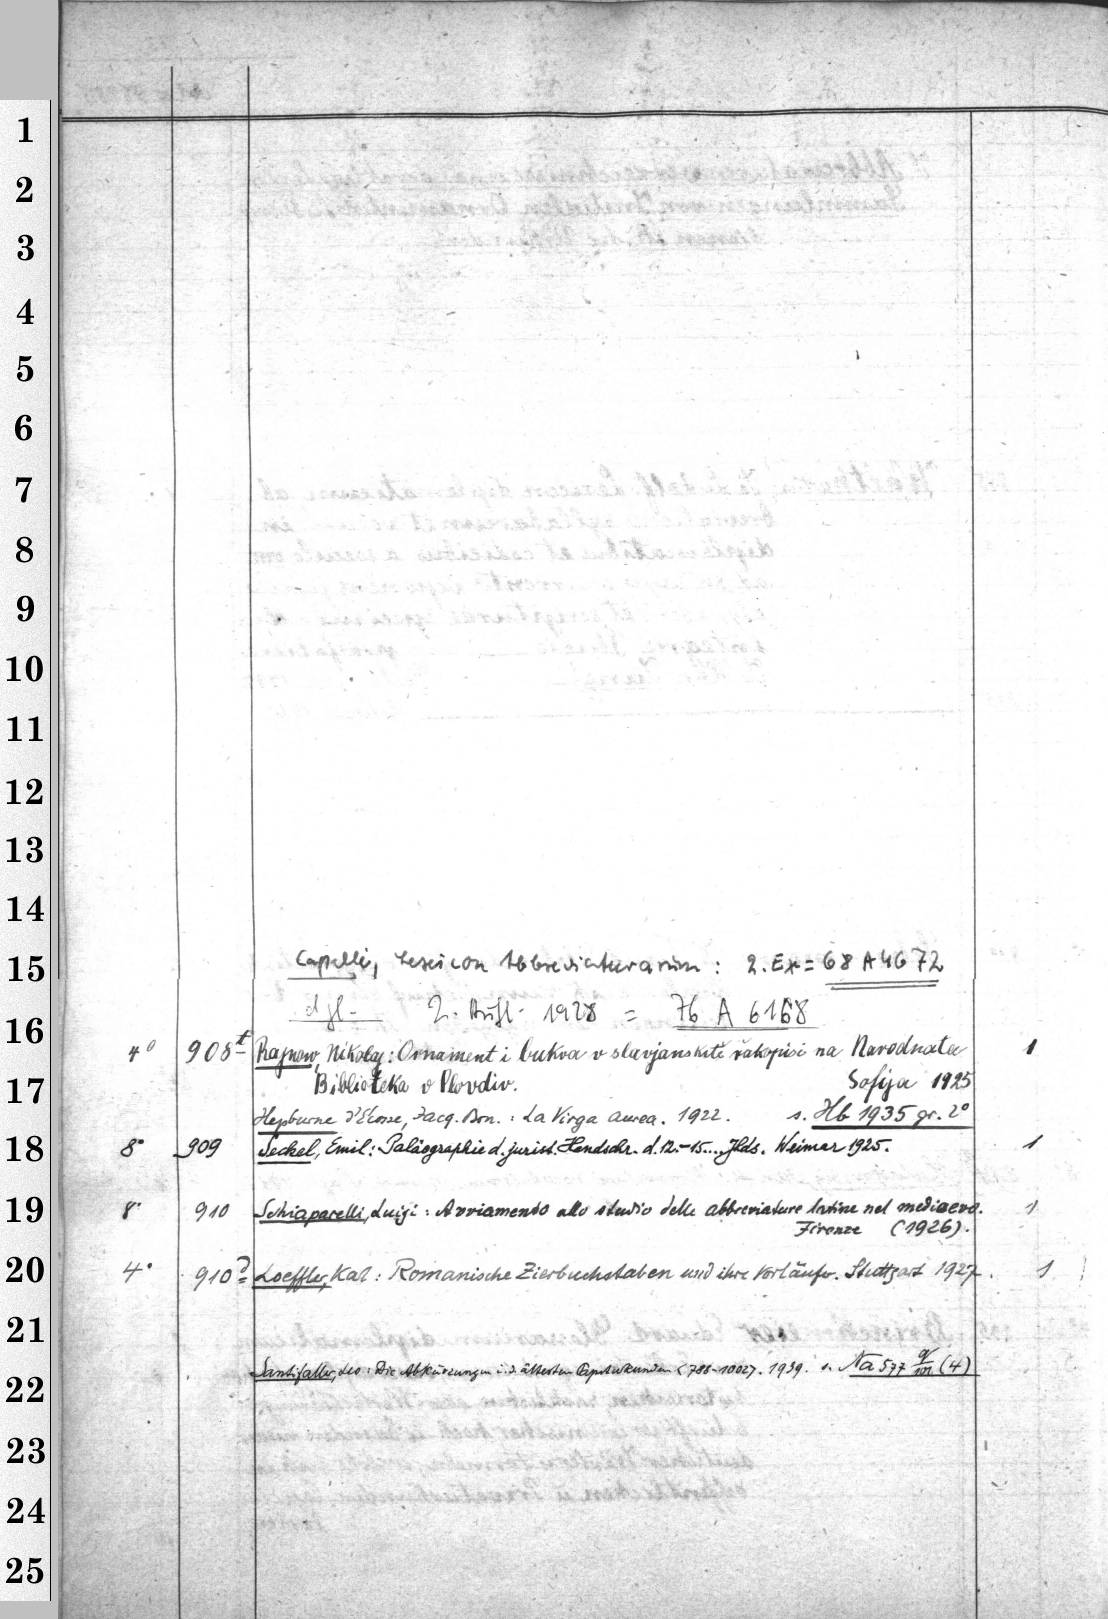 1
2
3
4
5
6
7
8
9
10
11
12
13
14
15
Capelli, Lexicon Abbreviaturarum: 2. Ex = 68 A 4672
dgl. 2. Aufl. 1928 = 76 A 6168
16
4° 908t Rajnow, Nikolaj: Ornament i bukva v slavjanskitě rakopisi na Narodnata 1
17
Biblioteka v Plovdiv. Sofija 1925
Hepburne d'Ecosse, Jacq. Bon.: La Virga aurea. 1922. s. Hb 1935 gr. 2°
18
8° 909 Seckel, Emil: Paläographie d. jurist. Handschr. d. 12.-15.... Jhds. Weimar 1925. 1
19
8° 910 Schiaparelli, Luigi: Avviamento allo studio delle abbreviature latine nel medioevo. 1
Firenze (1926).
20
4° 910 Loeffler, Karl: Romanische Zierbuchstaben und ihre Vorläufer. Stuttgart 1927. 1
21
Santifaller, Leo: Die Abkürzungen i. d. ältesten Papsturkunden (788-1002). 1939. s. Na 577 (4)
22
23
24
25